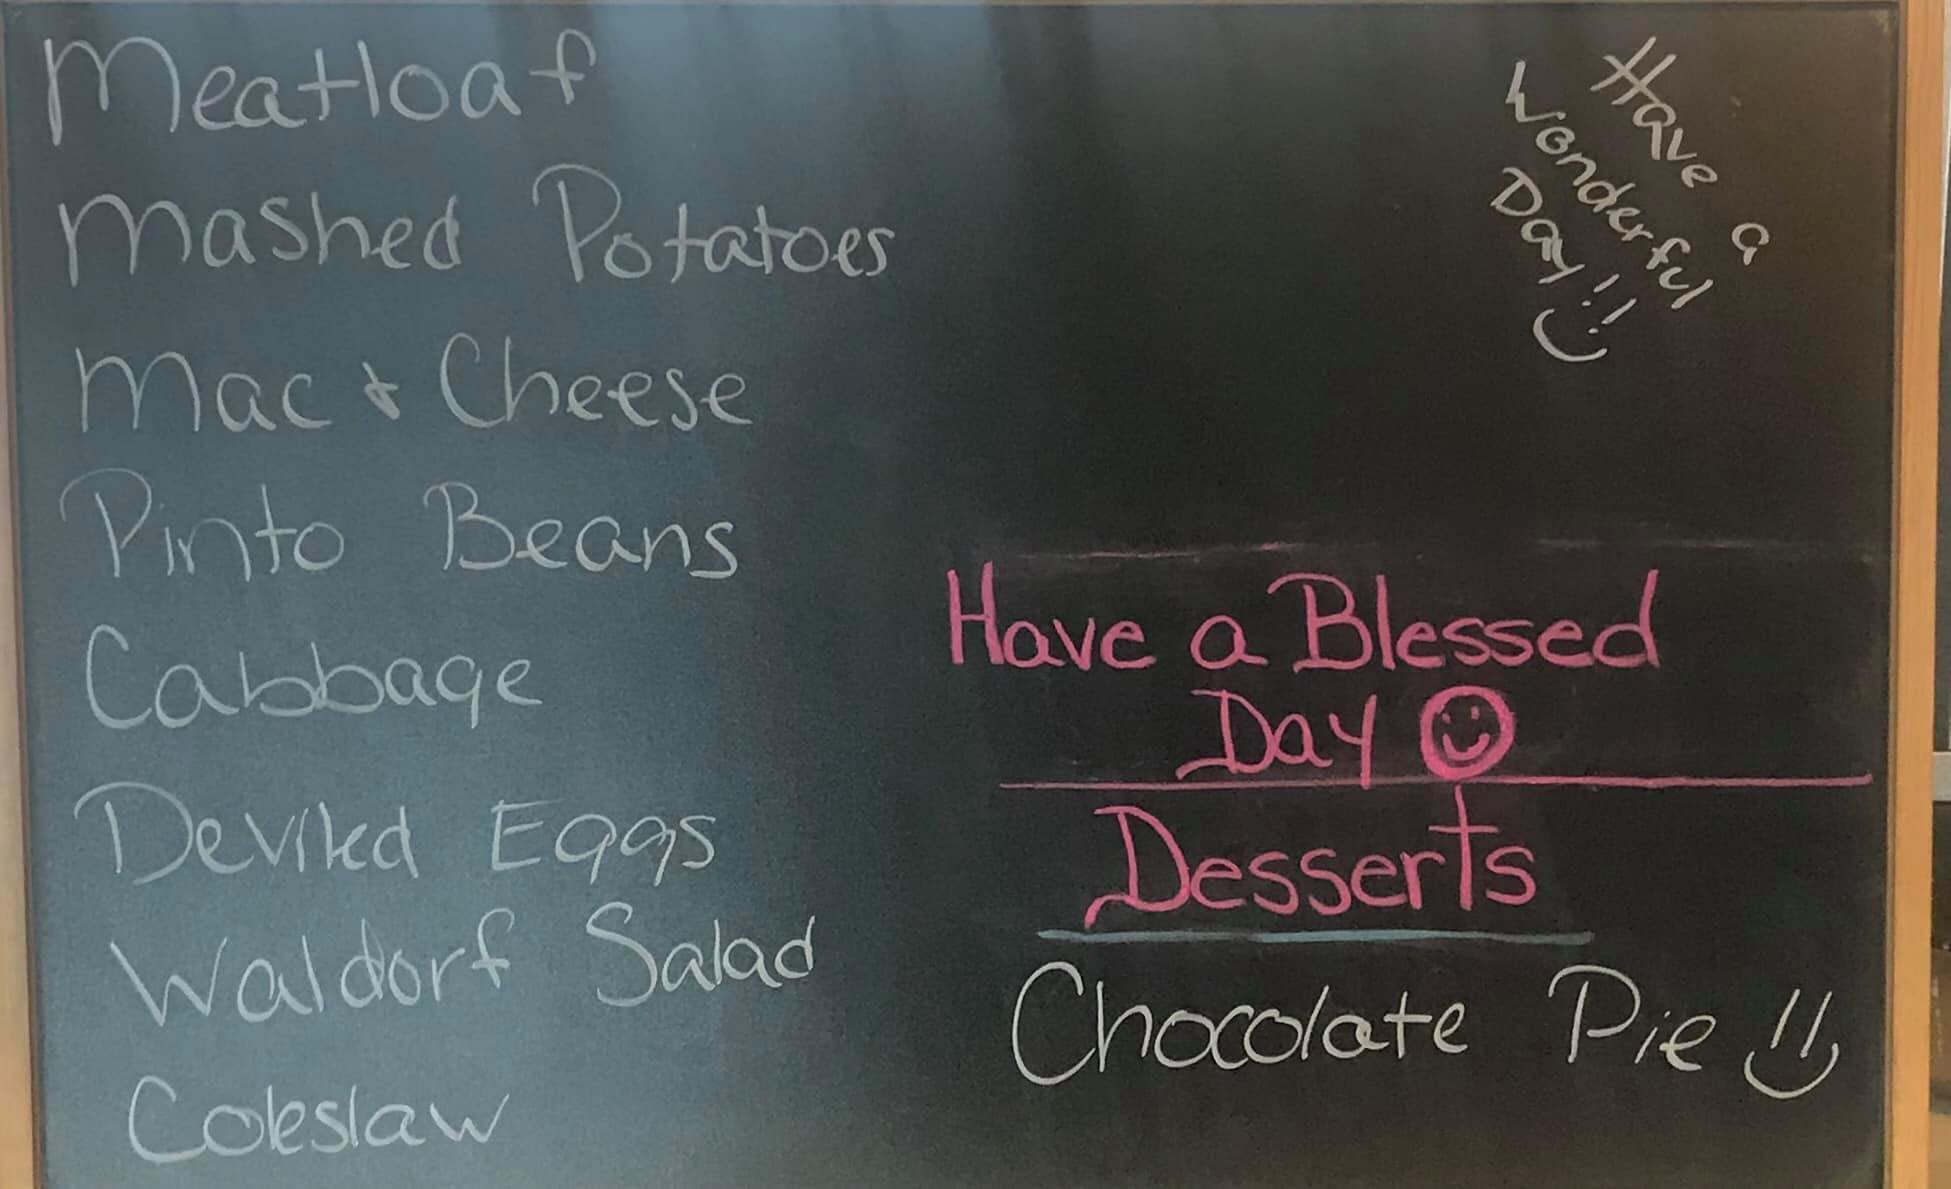 Meatloaf
Mashed Potatoes
Mac & Cheese
Pinto Beans
Cabbage
Deviled Eggs
Waldorf Salad
Coleslaw
Have a
Wonderful
Day!!
Have a Blessed
Day
Desserts
Chocolate Pie